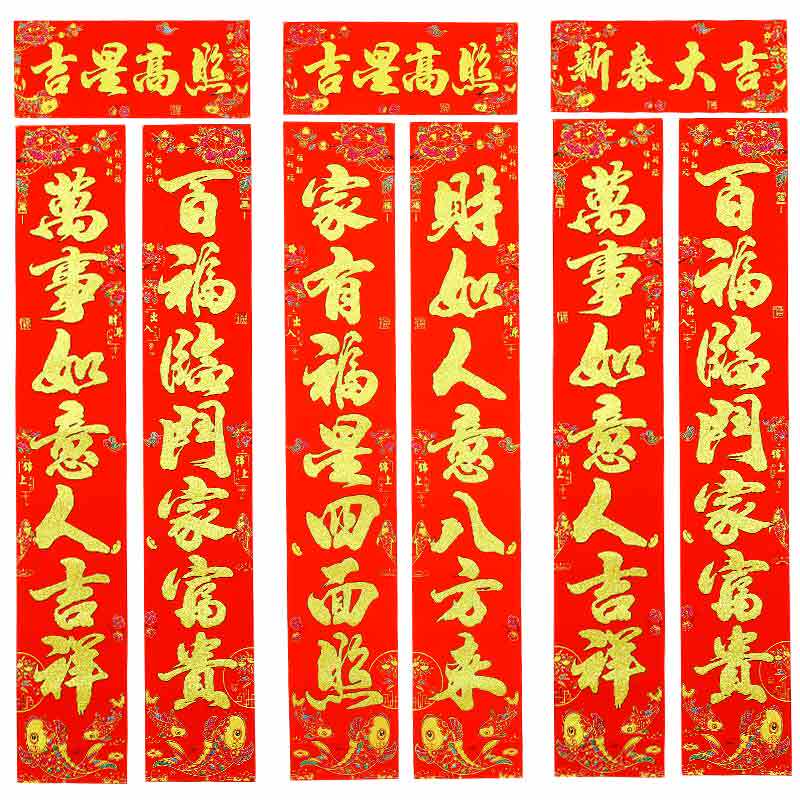 吉星高照
萬事如意人吉祥
百福臨門家富貴
吉星高照
家有福星四面照
財如人意八方来
新春大吉
萬事如意人吉祥
百福臨門家富貴